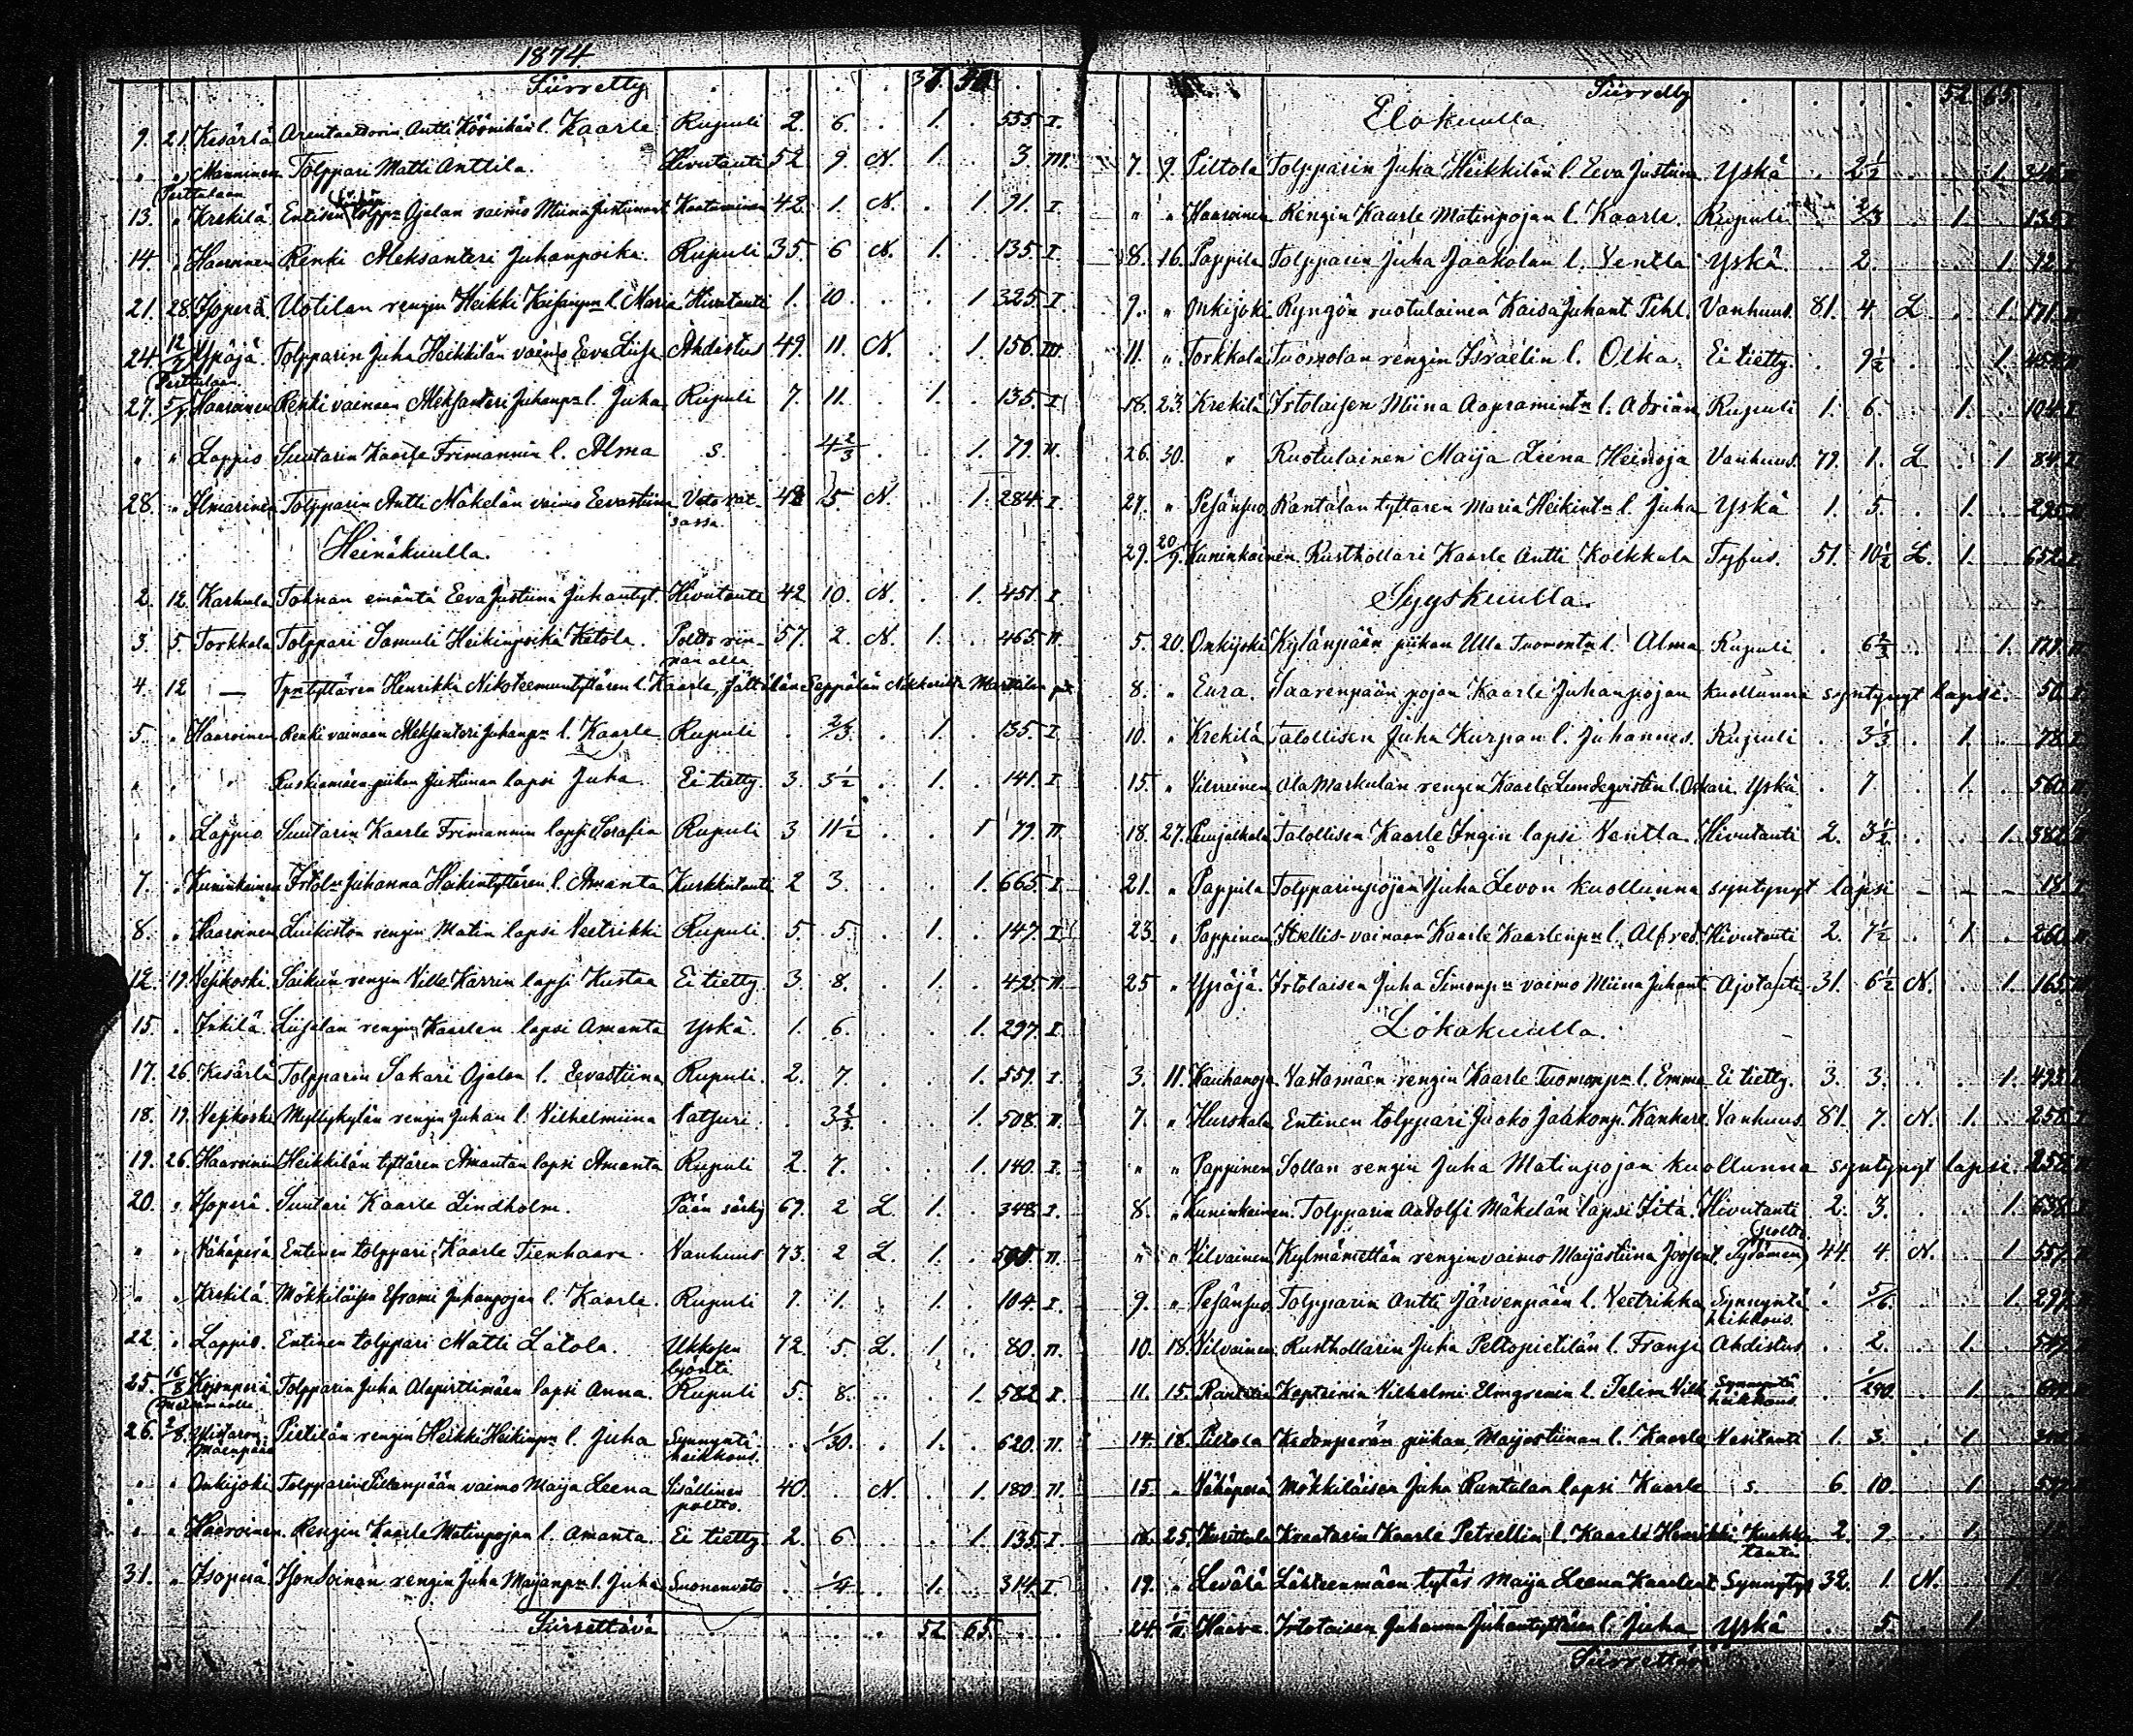 1874
Siirretty . . . . 37. 50.
9. 21. Kesärlä Arentaattorin Antti l. Kaarle Rupuli 2. 6. . 1. . 555. I.
" " Manninen Tolppari Matti Anttila. Hivutauti 52 9. N. 1. . 3. III.
Perttulaan
13. " Krekilä Entisen Ojalan vaimo Miina Justiina Kaatuminen 42. 1. N. . 1 91. I
14. " Haaroinen Renki Aleksanteri Juhanpoika. Rupuli 35. 6 N. 1. . 135. I
21. 28. Isoperä. Uotilan rengin Heikki l. Maria Hivutauti 1. 10. . . 1 325. I
24. 12/7 Ypäjä Tolpparin Juha Heikkilän vaimo Eeva Liisa Ahdistus 49. 11. N. . 1 156. III
Perttulaan
27. 5/7 Haaroinen Renki vainaan Aleksanteri Juhanp:n l. Juha Rupuli 7. 11. . 1. . 135. I
" " Loppio Suutarin Kaarle Frimannin l. Alma s. . 4 2/3 . . 1. 79. II.
28. " Ilmarinen Tolpparin Antti Mäkelän vaimo Eevastiina 48 5 N. . 1. 284. I.
Heinäkuulla.
2. 12. Karhula Tohnan emäntä Eeva Justiina Juhantyt. Hivutauti 42 10. N. . 1. 451. I.
3. 5. Torkkala Tolppari Samuli Heikinpoika Ketola. Poltto rin- 57. 2. N. 1. . 465. II.
nan alla
4. 12 — Tp:n tyttären Henrikka Nikoteemuntyttären l. Kaarle, Jättilän Seppälän
5. " Haaroinen Renki vainaan Aleksanteri Juhanp:n l. Kaarle. Rupuli . 2/3. . 1. . 135. I
" " " Ruskiamäen piikan Justiinan lapsi Juha. Ei tietty. 3. 3 1/2 . 1. . 141. I
" " Loppio Suutarin Kaarle Frimannin lapsi Serafia Rupuli 3 11 1/2 . . 1 79. II.
7. " Kuninkainen Itsol:n Juhanna Heikintyttären l. Amanta Kurkkutauti 2 3. . . 1. 665. I
8. " Haaroinen rengin Matin lapsi Veetrikki Rupuli. 5. 5. . 1. . 147. I
12. 19. Vejikoski. Saikun rengin Ville Karrin lapsi Kustaa Ei tietty. 3. 8. . 1. . 425. II.
15. " Inkilä Liisalan rengin Kaarlen lapsi Amanta Yskä. 1. 6. . . 1. 297. I.
17. 26. Kesärlä Tolpparin Sakari Ojalan l. Eevastiina Rupuli. 2. 7. . . 1. 557. I.
18. 19. Vejikoski Myllykylän rengin Juhan l. Vilhelmiina Vatsuri . 3 2/3 . . 1. 508. II.
19. 26. Haaroinen Heikkilän tyttären Amantan lapsi Amanta Rupuli 2. 7. . . 1. 140. I.
20. " Isoperä. Suutari Kaarle Lindholm. Pään särky 69. 2 L. 1. . 348. I.
" " Vähäperä Entinen tolppari Kaarle Tienhaara. Vanhuus 73. 2 L. 1. . 590. II.
" " Krekilä. Mökkiläisen Eframi Juhanpojan l. Kaarle. Rupuli 1. 1. . 1. . 104. I.
22. " Loppio. Entinen tolppari Matti Latola. Ukkosen 72. 5. L. 1 . 80. II.
lyönti
25. 16/8 Kojonperä Tolpparin Juha Alapirttimäen lapsi Anna. Rupuli 5. 8. . . 1. 582 I
26. 2/8. Pietilän rengin Heikki Heikinp:n l. Juha Synnyntä- . 1/30. . 1. . 620. II.
heikkous.
" " Onkijoki Tolpparin vaimo Maija Leena Sisällinen 40. . N. . 1. 180. II.
poltto.
" " Haaroinen. Rengin Kaarle Matinpojan l. Amanta. Ei tietty. 2. 6 . . 1. 135. I.
31. " Isoperä. Isontoinan rengin Juha Maijanp:n l. Juha Suonenveto . 1/4 . 1. . 314. I
Siirrettävä . . . . 52. 65. . .
Siirretty . . . . 52. 65.
Elokuulla.
7. 9. Piltola Tolpparin Juha Heikkilän l. Eeva Justiina Yskä . 2 1/2 . . 1.
" " Haaroinen Rengin Kaarle Matinpojan l. Kaarle. Rupuli . 2/3 . 1. . 135. I
8. 16. Pappila Tolpparin Juha Jaakolan l. Ventla Yskä . 2. . . 1. 12. I
9. " Onkijoki Ryngön ruotulainen Kaisa Juhant. Pihl. Vanhuus. 81. 4. L . 1. 171.
11. " Torkkala Tuomolan rengin Israelin l. Olka. Ei tietty. . 9 1/2 . . 1.
18. 23. Krekilä Itsolaisen Miina Aapramint:n l. Adrian Rupuli 1. 6. . 1. . 104. I
26. 30. " Ruotulainen Maija Leena Heinoja Vanhuus. 79. 1. L . 1 84. I
27. " Pesänsuo. Rantalan tyttären Maria Heikint:n l. Juha Yskä 1. 5. . 1. . 295.
29. 20/9. Kuninkainen. Rusthollari Kaarle Antti Kolkkala Tyfus. 51. 10 1/2 L. 1. . 652. I
Syyskuulla.
5. 20. Onkijoki Kylänpään piikan Ulla Tuomont:n l. Alma Rupuli . 6 2/3 . . 1. 179. II.
8. " Eura. Saarenpään pojan Kaarle Juhanpojan kuollunna syntynyt lapsi. 50. I
10. " Krekilä Talollisen Juha Kurpan l. Juhannes. Rupuli . 3 1/3 . 1. . 78. I
15. " Vilvainen Ala Markulan rengin Kaarle Lundeqvistin l. Oskari Yskä . 7 . 1. . 560. II.
18. 27. Puujalkala Talollisen Kaarle Ingin lapsi Ventla Hivutauti 2. 3 1/2 . . 1. 382.
21. " Pappila Tolpparinpojan Juha Levon kuollunna syntynyt lapsi — — — 18. I
23. " Pappinen Itsellis-vainaan Kaarle Kaarlenp:n l. Alfred. Hivutauti 2. 7 1/2 . 1. . 260. II.
25 " Ypäjä. Irtolaisen Juha Simonp:n vaimo Miina Juhant. Ajotauti 31. 6 1/2 N. . 1. 165.
Lokakuulla.
3. 11. Kauhanoja Vastamäen rengin Kaarle Tuomonp:n l. Emma Ei tietty. 3. 3. . . 1. 493.
7. " Hurskala Entinen tolppari Jaako Jaakonp. Kankare Vanhuus. 81. 7. N. 1. . 258.
" " Pappinen Sollan rengin Juha Matinpojan kuollunna syntynyt lapsi 258.
8. " Kuninkainen. Tolpparin Aadolfi Mäkelän lapsi Iita. Hivutauti 2. 3. . . 1. 638.
" " Vilvainen Kylmämettän rengin vaimo Maijastiina Joosent. Sydämen poltto 44. 4 N. . 1 557.
9. " Pesänsuo. Tolpparin Antti Järvenpään l. Veetrikka Synnyntä . 5/6. . . 1. 297.
heikkous.
10. 18. Vilvainen. Rusthollarin Juha Peltopietilän l. Fransi Ahdistus . 2. . 1. .
11. 15. Kapteinin Vilhelmi Elmgrenin l. Selim Vilh. Synnyntä . 1/290. . 1. .
heikkous.
14. 18. Piltola Kedonperän piikan Maijastiinan l. Kaarle Vesitauti 1. 3. . 1.
15. " Vähäperä. Mökkiläisen Juha Rantalan lapsi Kaarle s. 6. 10. . 1.
16. 25. Kraatarin Kaarle Petrellin l. Kaarle Henrikki Kurkku- 2. 9. . 1.
tauti
19. " Levälä Lähteenmäen tytär Maija Leena Kaarlent. Synnytys 32. 1. N. . 1.
24. 1/11 Haara. Irtolaisen Juhanna Juhantyttären l. Juha Yskä . 5. . 1
Siirrettävä